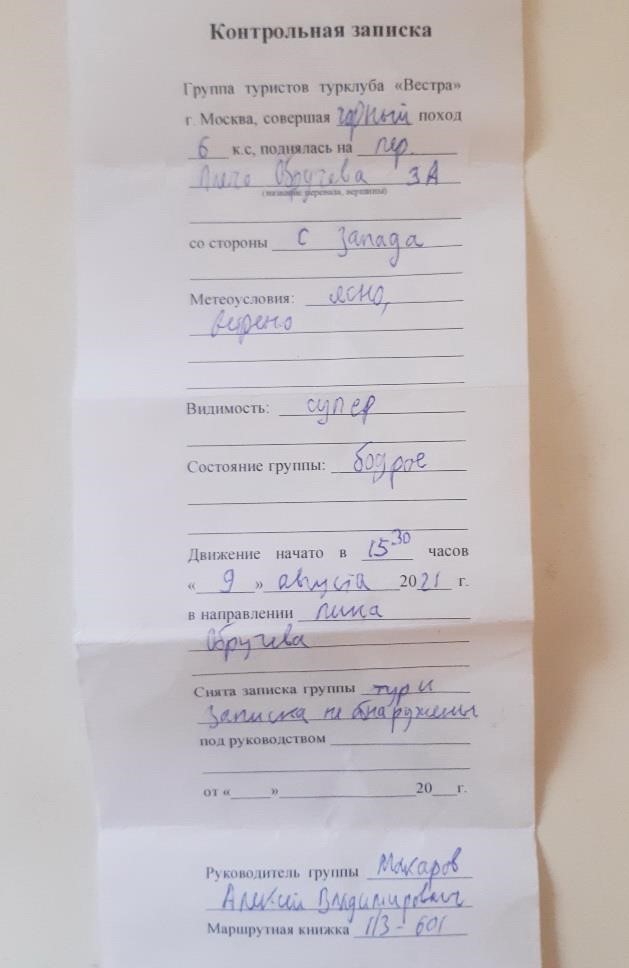 Контрольная записка
Группа туристов турклуба «Вестра»
г. Москва, совершая горный поход
6 к.с, поднялась на пер.
Плечо Обручева 3А
(название перевала, вершины)
со стороны с запада
Метеоусловия: ясно,
ветрено
Видимость: супер
Состояние группы: бодрое
Движение начато в 15³⁰ часов
«9» августа 2021 г.
в направлении пика
Обручева
Снята записка группы тур и
записка не обнаружены
под руководством
от «_____»________________20___г.
Руководитель группы Макаров
Алексей Владимирович
Маршрутная книжка 1/3-601